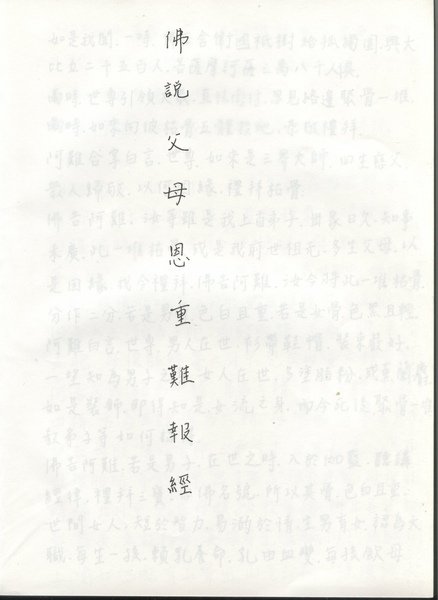 佛說父母恩重難報經
如是我聞.一時.舍衛國祇樹給孤獨園.與大
比丘二千五百人.菩薩摩訶薩三萬八千人俱.
爾時.世尊引領.直往南行.忽見路邊聚骨一堆.
爾時.如來向彼枯骨五體投地.恭敬禮拜.
阿難合掌白言.世尊.如來是三界大師.四生慈父.
眾人歸敬.以何因緣.禮拜枯骨.
佛告阿難.汝等雖是我上首弟子.出家日久.知事
未廣.此一堆枯骨.或是我前世祖先.多生父母.以
是因緣.我今禮拜.佛告阿難.汝今將此一堆枯骨
分作二分.若是男骨.色白且重.若是女骨.色黑且輕.
阿難白言.世尊.男人在世.衫帶鞋帽.裝束嚴好.
一望知為男子之.女人在世.多塗脂粉.或薰蘭麝.
如是裝飾.即得知是女流之身.而今死後.骨一般
教弟子等.如何
佛告阿難.若是男子.在世之時.入於伽藍.聽講
經律.禮拜三寶.佛名號.所以其骨.色白且重.
世間女人.短於智力.易溺於情.生男育女.認為天
職.每生一孩.賴乳養命.乳由血變.每孩飲母